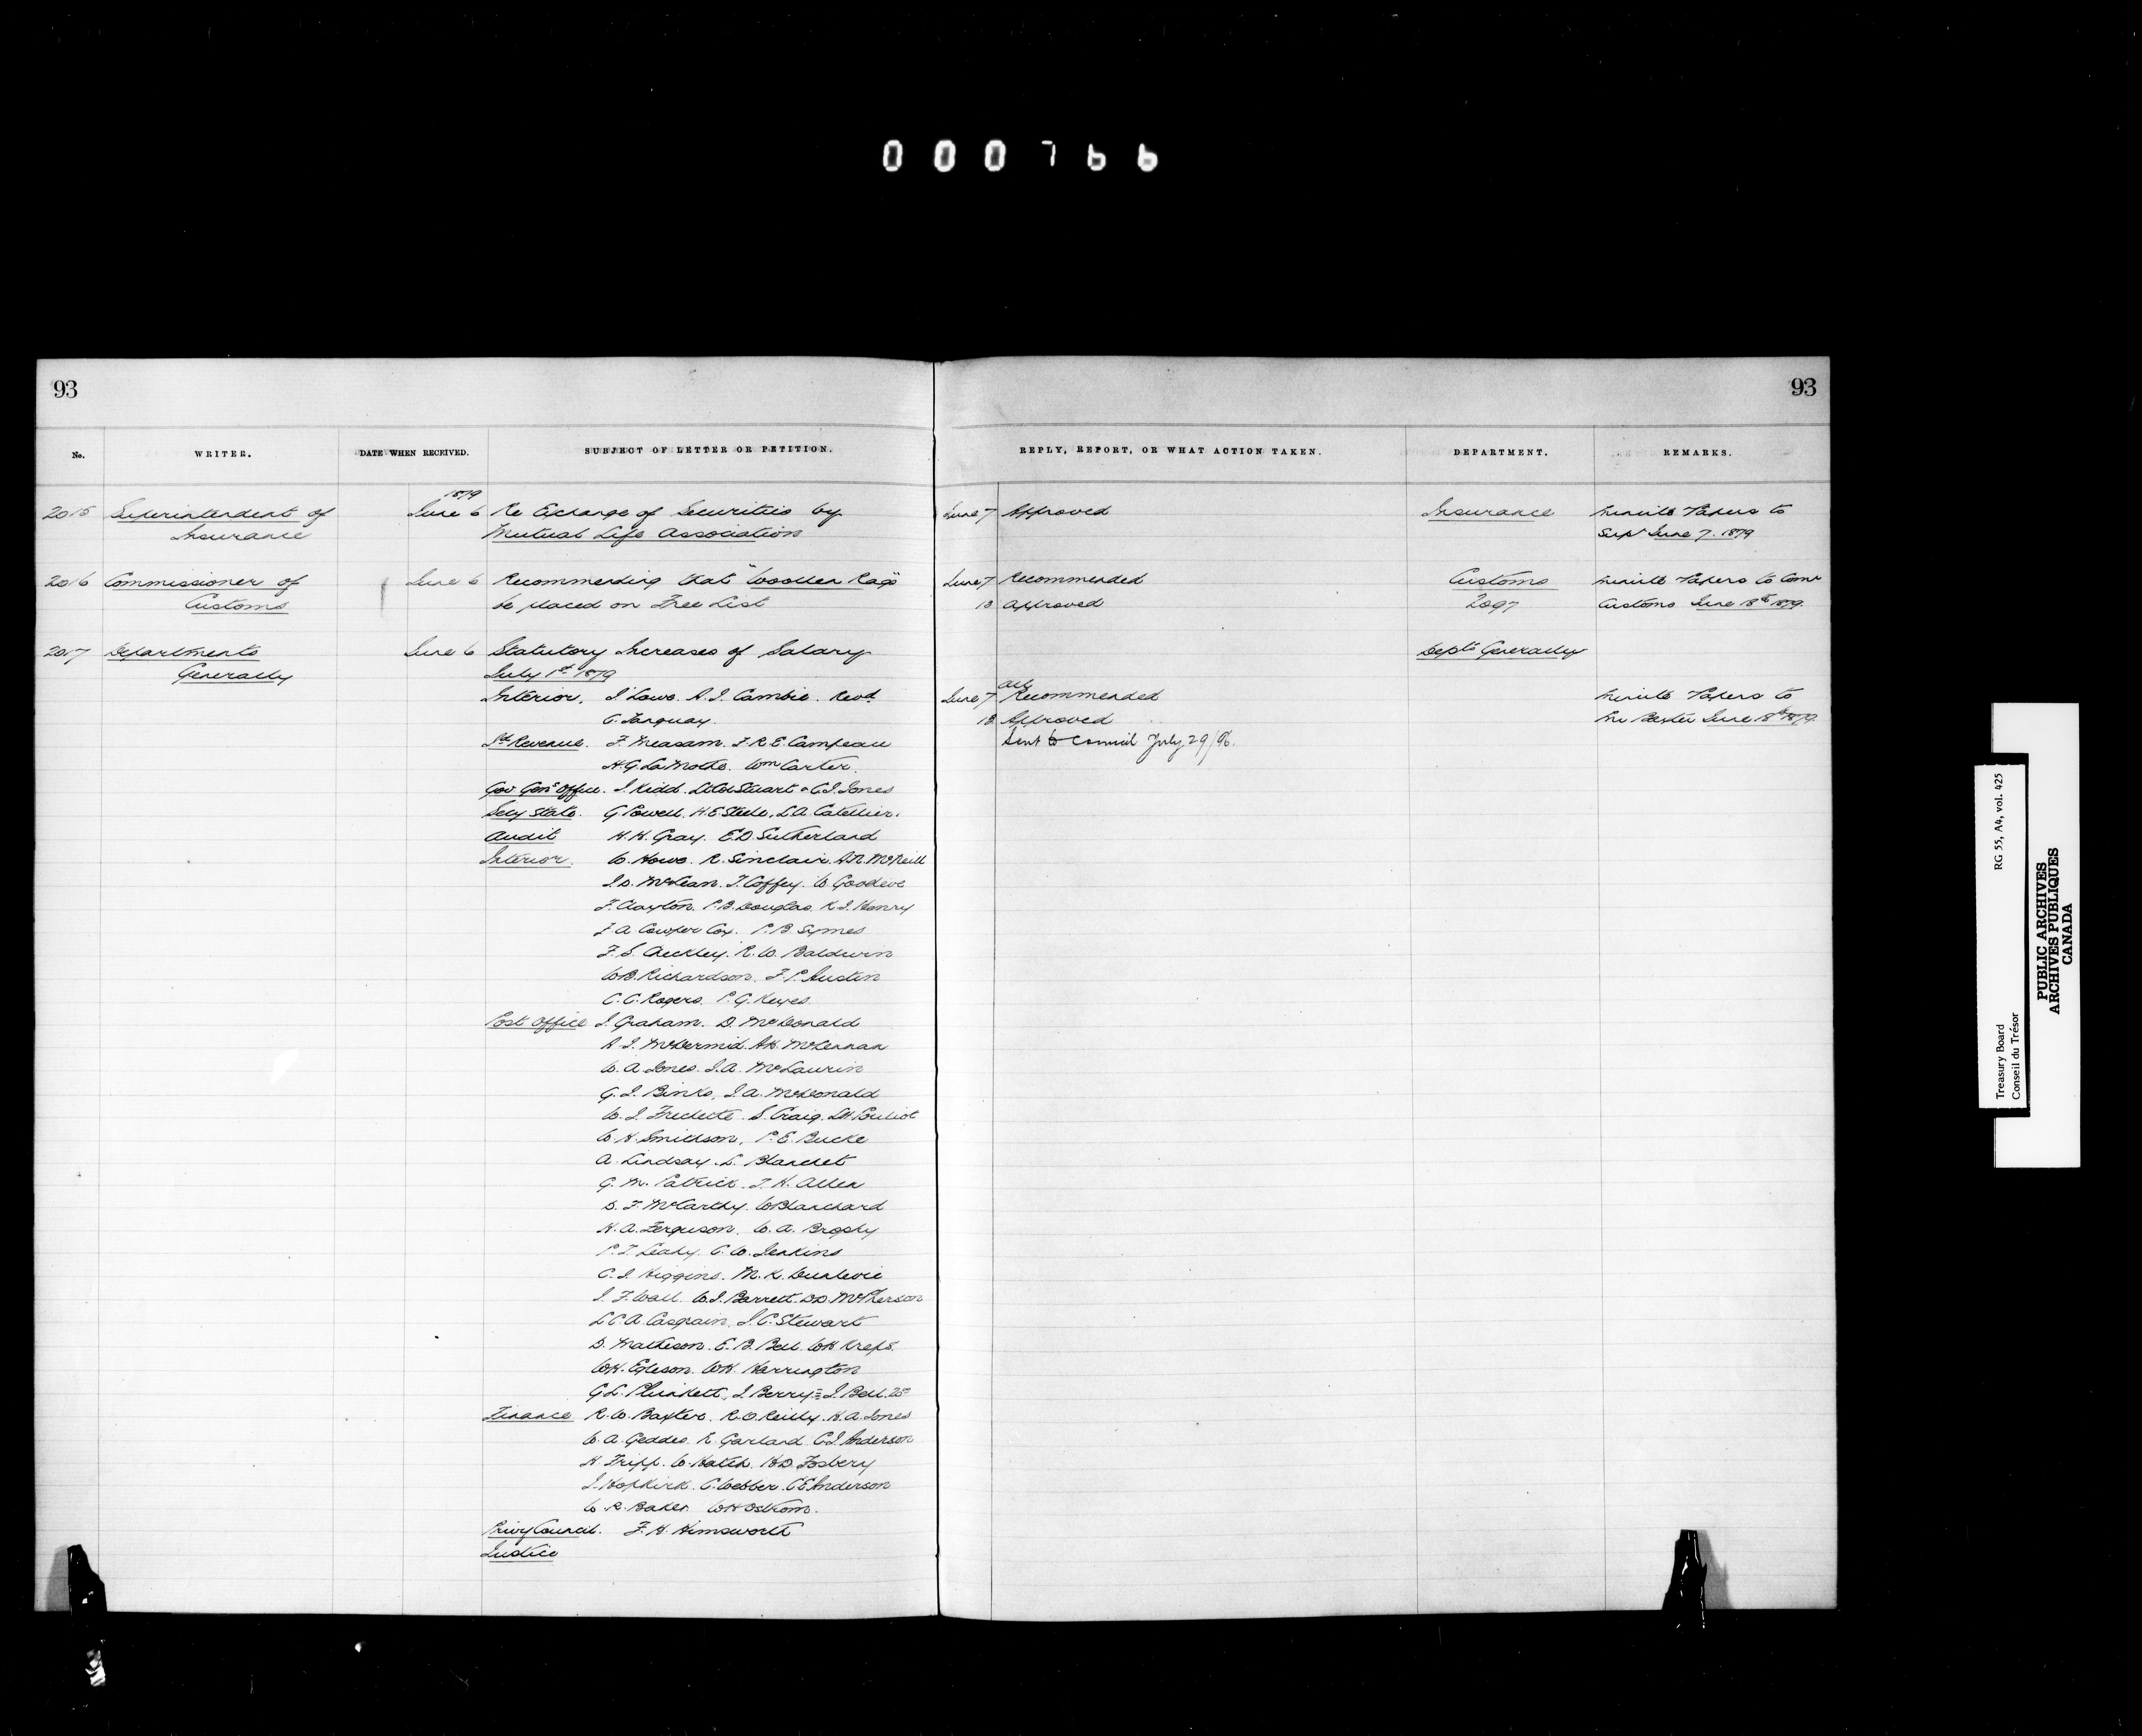 000766
93
93
No.
WRITER.
DATE WHEN RECEIVED.
SUBJECT OF LETTER OR PETITION.
REPLY, REPORT, OR WHAT ACTION TAKEN.
DEPARTMENT.
REMARKS.
1879
2015 Superintendent of June 6 Re Exchange of Securities by June 7 Approved Insurance Minute Papers to
Insurance Mutual Life Association Supt June 7. 1879
2016 Commissioner of June 6 Recommending that "Woollen Rags" June 7 Recommended Customs Minute Papers to Comr
Customs be placed on Free List 18 Approved 2097 Customs June 18th 1879.
2017 Departments June 6 Statutory Increases of Salary Depts Generally
Generally July 1st 1879
Interior. J Lowe. A. J. Cambie. Revd. June 7 Recommended Minute Papers to
C. Tanguay. 18 Approved Mr Baxter June 18th 1879.
Id Revenue. F. Measam. F. R. E. Campeau Sent to Council July 29/96.
H. G. LaMothe. Wm Carter.
Gov Gen's Office. J. Kidd. Lt Col Stuart & C. J. Jones
Secy State. G Powell. H. E Steele. L. A. Catellier.
Audit H. H. Gray. E. D. Sutherland
Interior. W. Howe. R. Sinclair. A. N. McNeill
J. D. McLean. T. Coffey. W. Goodeve
F. Clayton. P. B. Douglas. K. J. Henry
J. A. Cowper Cox. P. B. Symes
F. S. Checkley. R. W. Baldwin
W. B. Richardson. F. P. Austin
C. C. Rogers. P. G. Keyes.
Post Office J. Graham. D. McDonald
A. J. McDermid. A. H. McLennan
W. A. Jones. J. A. McLaurin
G. J. Binks, J. A. McDonald
W. J. Frechette. S. Craig. Pouliot
W. H. Smithson. P. E. Bucke
A. Lindsay. L. Blanchet
G. M. Patrick. T. H. Allen
D. F. McCarthy. W Blanchard
H. A. Ferguson. W. A. Brophy
P. T. Leahy. C. W. Jenkins
C. J. Higgins. M. K. Dunlevie
J. F. Wall. W. J. Barrett. D. D. McPherson
L. C. A. Casgrain. J. C. Stewart
D. Matheson. E. B. Bell. W. H. Kreps.
W. H. Eyleson. W. H. Harrington
G. L. Plunkett. J. Berry J. Bell.
Finance R. W. Baxter. R. O. Reilly. H. A. Jones
W. A. Geddes. N. Garland. C. J. Anderson
H. Fripp. W. Hatch. H. D. Fosbery
J. Hopkirk. C. Webber. C. E. Anderson
W. R. Baker. W. H. Ostrom.
Privy Council. F. H. Himsworth
Justice
Treasury Board RG 55, A4, vol. 425
Conseil du Trésor
PUBLIC ARCHIVES
ARCHIVES PUBLIQUES
CANADA